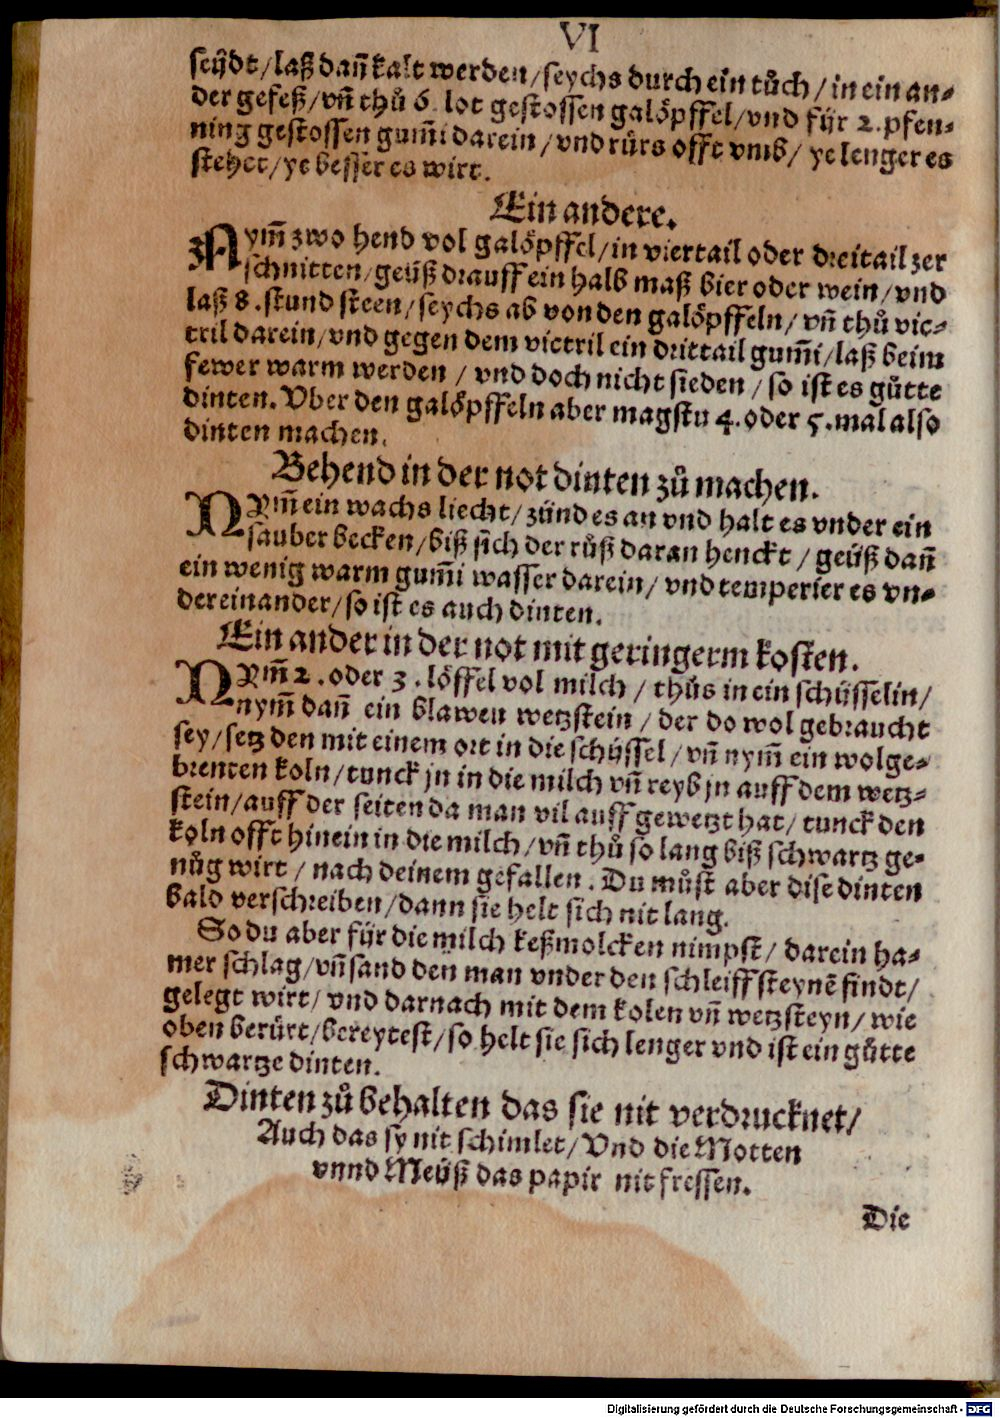 VI
seŷdt/laß dañ kalt werden/seychs durch ein tůch/in ein an⸗
der gefeß/vñ thů 6. lot gestossen galöpffel/vnd für 2. pfen⸗
ning gestossen gum̃i darein/vnd rürs offt vmb/ ye lenger es
stehet/ye besser es wirt.
Ein andere.
Nym̃ zwo hend vol galöpffel/in viertail oder dreitail zer
schnitten/geüß drauff ein halb maß bier oder wein/vnd
laß 8. stund steen/seychs ab von den galöpffeln/vñ thů vic⸗
tril darein/vnd gegen dem victril ein drittail gum̃i/laß beim
fewer warm werden/vnd doch nicht sieden/so ist es gůtte
dinten. Vber den galöpffeln aber magstu 4. oder 5. mal also
dinten machen.
Behend in der not dinten zů machen.
NYm̃ ein wachs liecht/zünd es an vnd halt es vnder ein
sauber becken/biß sich der růß daran henckt/geüß dañ
ein wenig warm gum̃i wasser darein/vnd temperier es vn⸗
der einander/so ist es auch dinten.
Ein ander in der not mit geringerm kosten.
NYm̃ 2. oder 3. löffel vol milch/thůs in ein schüsselin/
nym̃ dañ ein blawen wetzstein/der do wol gebraucht
sey/setz den mit einem ort in die schüssel/vñ nym̃ ein wolge⸗
brenten koln/tunck jn in die milch vñ reyb jn auff dem wetz⸗
stein/auff der seiten da man vil auff gewetzt hat/tunck den
koln offt hinein in die milch/vñ thů so lang biß schwartz ge⸗
nůg wirt/nach deinem gefallen. Du můst aber dise dinten
bald verschreiben/dann sie helt sich nit lang.
So du aber für die milch keßmolcken nimpst/darein ha⸗
mer schlag/vñ sand den man vnder den schleiffsteynē findt/
gelegt wirt/vnd darnach mit dem kolen vñ wetzsteyn/wie
oben berürt/bereytest/so helt sie sich lenger vnd ist ein gůtte
schwartze dinten.
Dinten zů behalten das sie nit verdrucknet/
Auch das sy nit schimlet/Vnd die Motten
vnnd Meüß das papir nit fressen.
Die
Digitalisierung gefördert durch die Deutsche Forschungsgemeinschaft - DFG